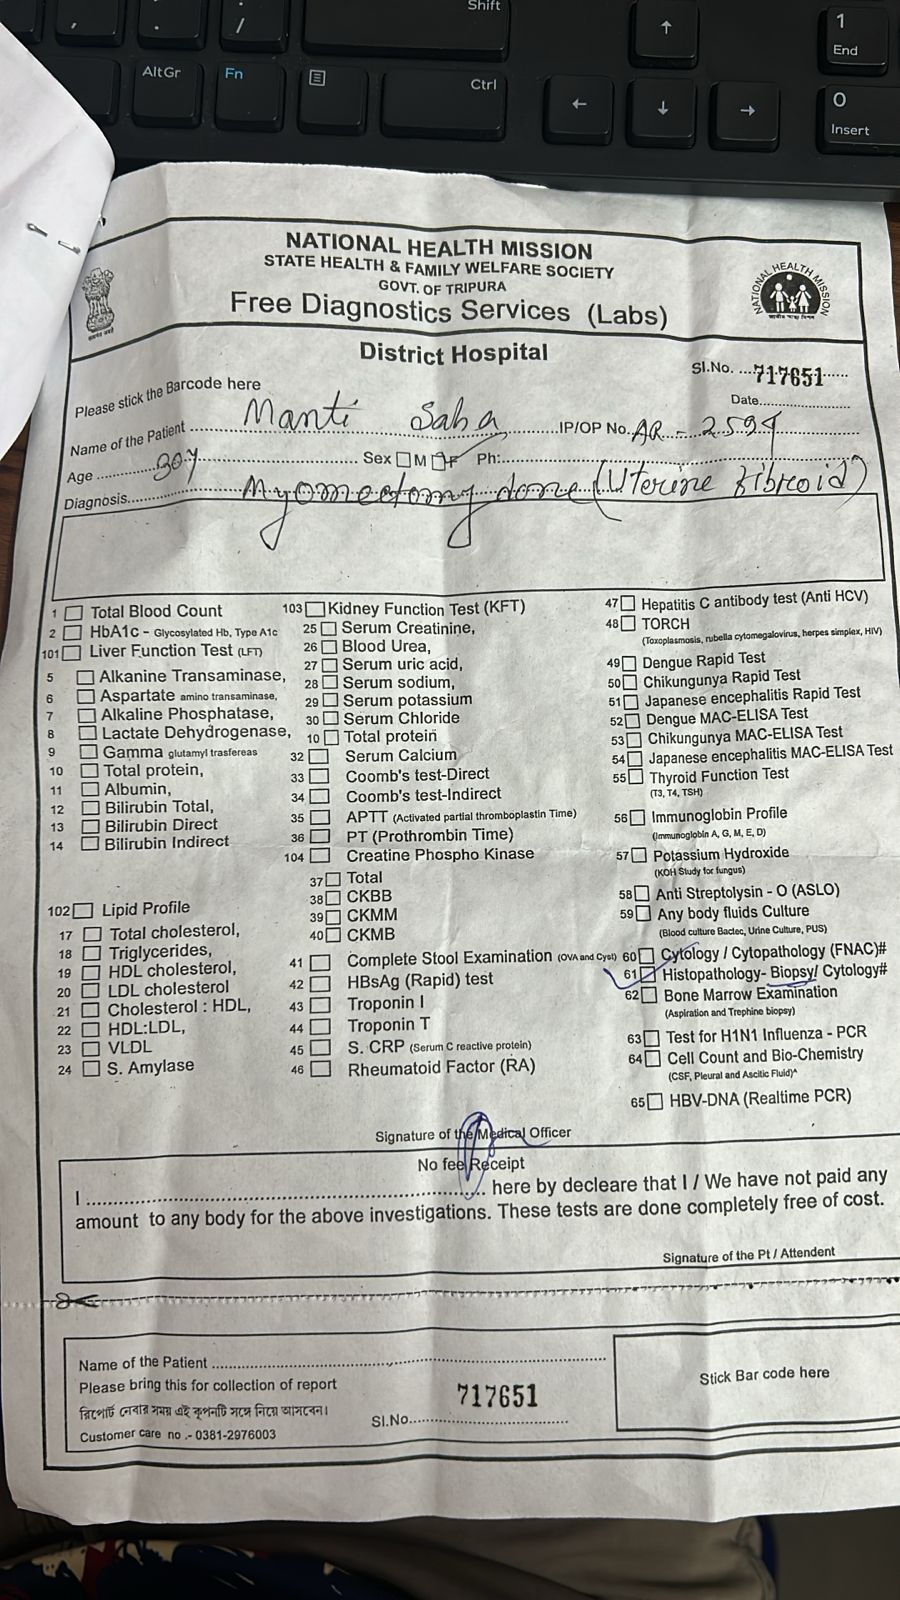 Shift
, . /
1
End
AltGr Fn Ctrl
0
Insert
NATIONAL HEALTH MISSION
STATE HEALTH & FAMILY WELFARE SOCIETY
GOVT. OF TRIPURA
Free Diagnostics Services (Labs)
NATIONAL HEALTH MISSION
District Hospital
Sl.No. ....717651......
Please stick the Barcode here
Date........................
Name of the Patient Manti Saha IP/OP No. AR - 2599
Age 30y Sex M F Ph:
Diagnosis Myomectomy done (Uterine fibroid)
1 Total Blood Count
2 HbA1c - Glycosylated Hb, Type A1c
101 Liver Function Test (LFT)
5 Alkanine Transaminase,
6 Aspartate amino transaminase,
7 Alkaline Phosphatase,
8 Lactate Dehydrogenase,
9 Gamma glutamyl trasfereas
10 Total protein,
11 Albumin,
12 Bilirubin Total,
13 Bilirubin Direct
14 Bilirubin Indirect
102 Lipid Profile
17 Total cholesterol,
18 Triglycerides,
19 HDL cholesterol,
20 LDL cholesterol
21 Cholesterol : HDL,
22 HDL:LDL,
23 VLDL
24 S. Amylase
103 Kidney Function Test (KFT)
25 Serum Creatinine,
26 Blood Urea,
27 Serum uric acid,
28 Serum sodium,
29 Serum potassium
30 Serum Chloride
10 Total protein
32 Serum Calcium
33 Coomb's test-Direct
34 Coomb's test-Indirect
35 APTT (Activated partial thromboplastin Time)
36 PT (Prothrombin Time)
104 Creatine Phospho Kinase
37 Total
38 CKBB
39 CKMM
40 CKMB
41 Complete Stool Examination (OVA and Cyst)
42 HBsAg (Rapid) test
43 Troponin I
44 Troponin T
45 S. CRP (Serum C reactive protein)
46 Rheumatoid Factor (RA)
47 Hepatitis C antibody test (Anti HCV)
48 TORCH
(Toxoplasmosis, rubella cytomegalovirus, herpes simplex, HIV)
49 Dengue Rapid Test
50 Chikungunya Rapid Test
51 Japanese encephalitis Rapid Test
52 Dengue MAC-ELISA Test
53 Chikungunya MAC-ELISA Test
54 Japanese encephalitis MAC-ELISA Test
55 Thyroid Function Test
(T3, T4, TSH)
56 Immunoglobin Profile
(Immunoglobin A, G, M, E, D)
57 Potassium Hydroxide
(KOH Study for fungus)
58 Anti Streptolysin - O (ASLO)
59 Any body fluids Culture
(Blood culture Bactec, Urine Culture, PUS)
60 Cytology / Cytopathology (FNAC)#
61 Histopathology- Biopsy/ Cytology#
62 Bone Marrow Examination
(Aspiration and Trephine biopsy)
63 Test for H1N1 Influenza - PCR
64 Cell Count and Bio-Chemistry
(CSF, Pleural and Ascitic Fluid)^
65 HBV-DNA (Realtime PCR)
Signature of the Medical Officer
No fee Receipt
I ........................ here by decleare that I / We have not paid any
amount to any body for the above investigations. These tests are done completely free of cost.
Signature of the Pt / Attendent
Name of the Patient ........................
Please bring this for collection of report
রিপোর্ট নেবার সময় এই কুপনটি সঙ্গে নিয়ে আসবেন।
Customer care no .- 0381-2976003
717651
Sl.No........................
Stick Bar code here